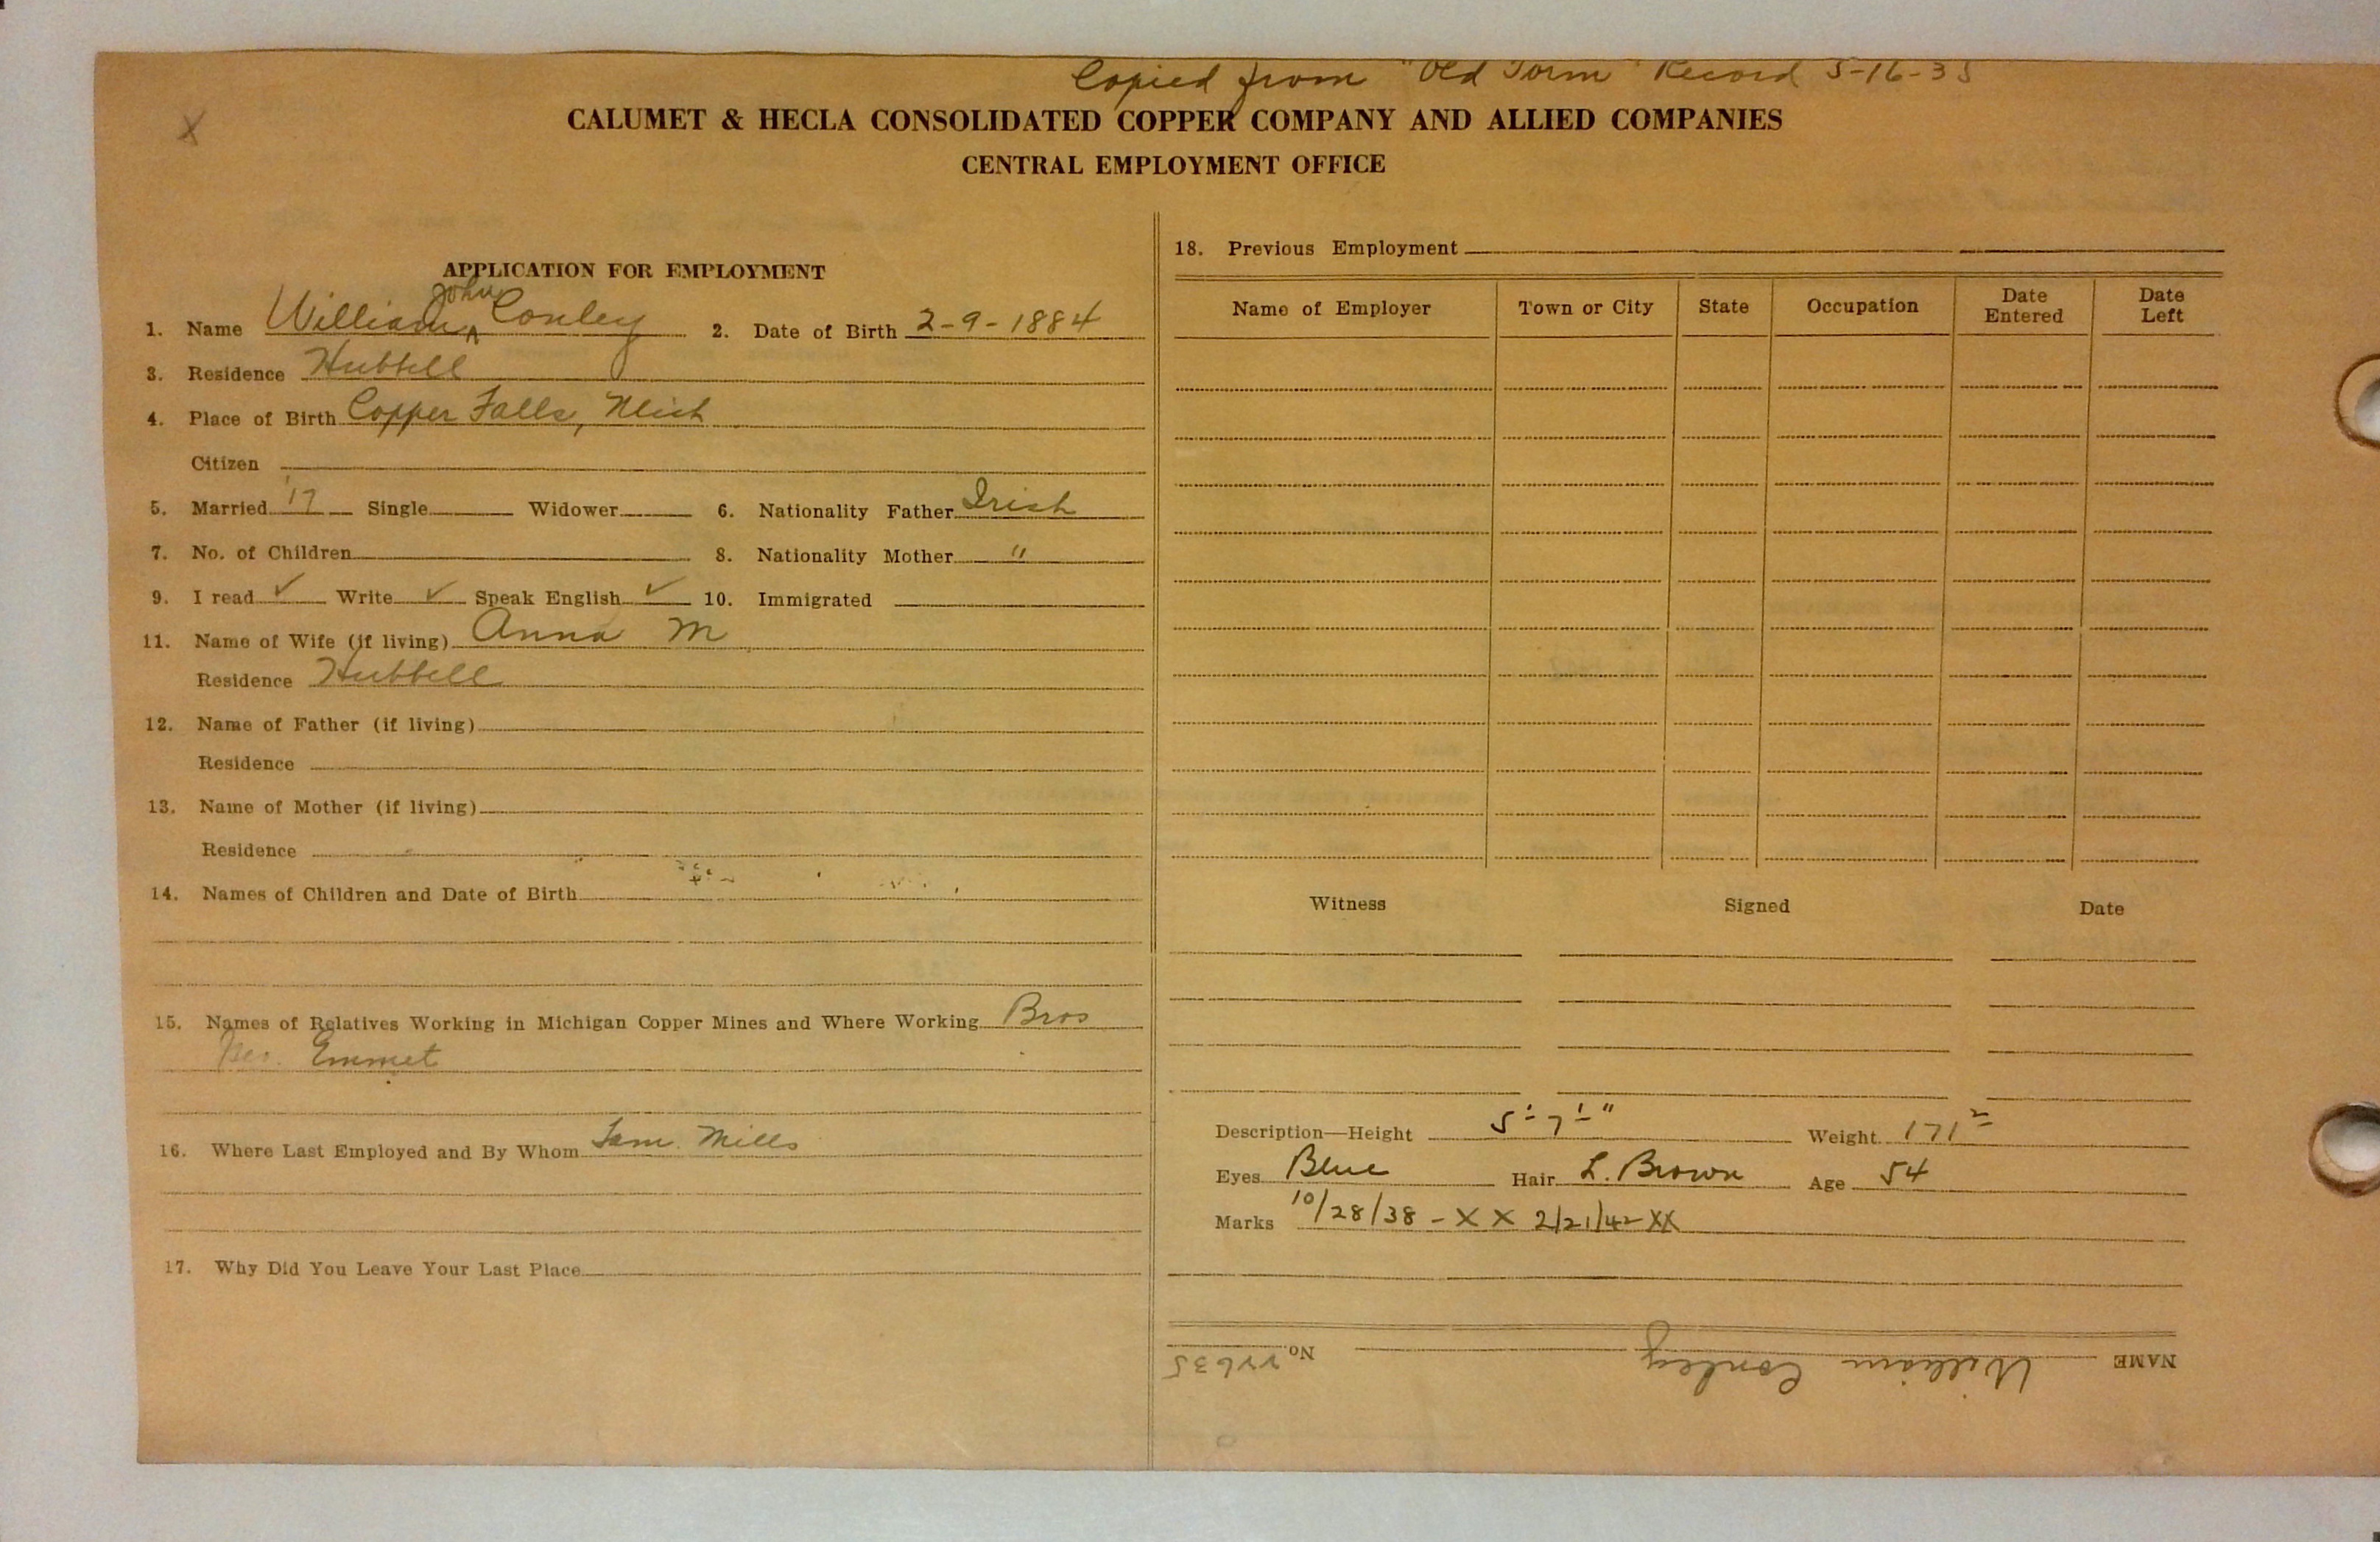 Copied from "Old Form" Record 5-16-35
X
CALUMET & HECLA CONSOLIDATED COPPER COMPANY AND ALLIED COMPANIES
CENTRAL EMPLOYMENT OFFICE
APPLICATION FOR EMPLOYMENT
John
1. Name William ^ Conley 2. Date of Birth 2-9-1884
3. Residence Hubbell
4. Place of Birth Copper Falls, Mich
Citizen
5. Married '17 Single Widower 6. Nationality Father Irish
7. No. of Children 8. Nationality Mother "
9. I read ✓ Write ✓ Speak English ✓ 10. Immigrated
11. Name of Wife (if living) Anna M
Residence Hubbell
12. Name of Father (if living)
Residence
13. Name of Mother (if living)
Residence
14. Names of Children and Date of Birth
15. Names of Relatives Working in Michigan Copper Mines and Where Working Bros
Emmet
16. Where Last Employed and By Whom Tam. Mills
17. Why Did You Leave Your Last Place
18. Previous Employment
Name of Employer Town or City State Occupation Date Entered Date Left
Witness Signed Date
Description—Height 5'-7"- Weight 171
Eyes Blue Hair L. Brown Age 54
Marks 10/28/38 - X X 2/21/42 XX
NAME William Conley No 22635